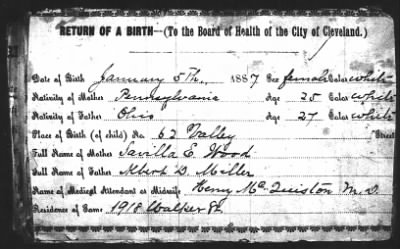 RETURN OF A BIRTH—(To the Board of Health of the City of Cleveland.)
Date of Birth January 5th, 1887 Sex female Color white
Nativity of Mother Pennsylvania Age 25 Color white
Nativity of Father Ohio Age 27 Color white
Place of Birth (of child) No. 62 Valley Street
Full Name of Mother Savilla E. Wood
Full Name of Father Albert D. Miller
Name of Medical Attendant or Midwife Henry McQuiston M.D.
Residence of Same 1918 Walker St.